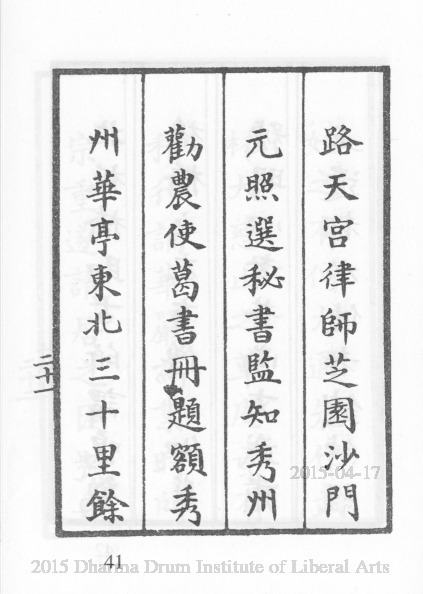 路天宮律師芝園沙門
元照選秘書監知秀州
勸農使葛書冊題額秀
州華亭東北三十里餘
二十一
2015-04-17
41
2015 Dharma Drum Institute of Liberal Arts